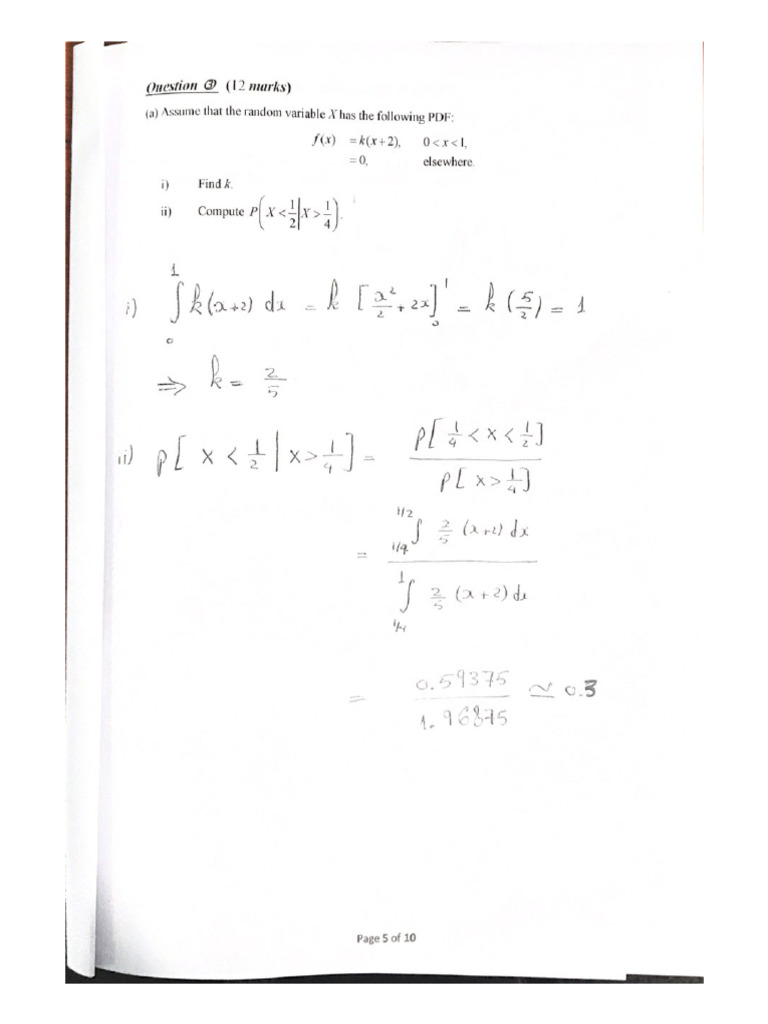 Question ③ (12 marks)
(a) Assume that the random variable X has the following PDF:
f(x) = k(x+2), 0<x<1,
= 0, elsewhere.
i) Find k.
ii) Compute P(X < 1/2 | X > 1/4).
i) ∫₀¹ k(x+2) dx = k [x²/2 + 2x]₀¹ = k (5/2) = 1
⇒ k = 2/5
ii) P[ X < 1/2 | X > 1/4 ] = P[ 1/4 < X < 1/2 ] / P[ X > 1/4 ]
= ∫_{1/4}^{1/2} 2/5 (x+2) dx / ∫_{1/4}^{1} 2/5 (x+2) dx
= 0.59375 / 1.96875 ≃ 0.3
Page 5 of 10